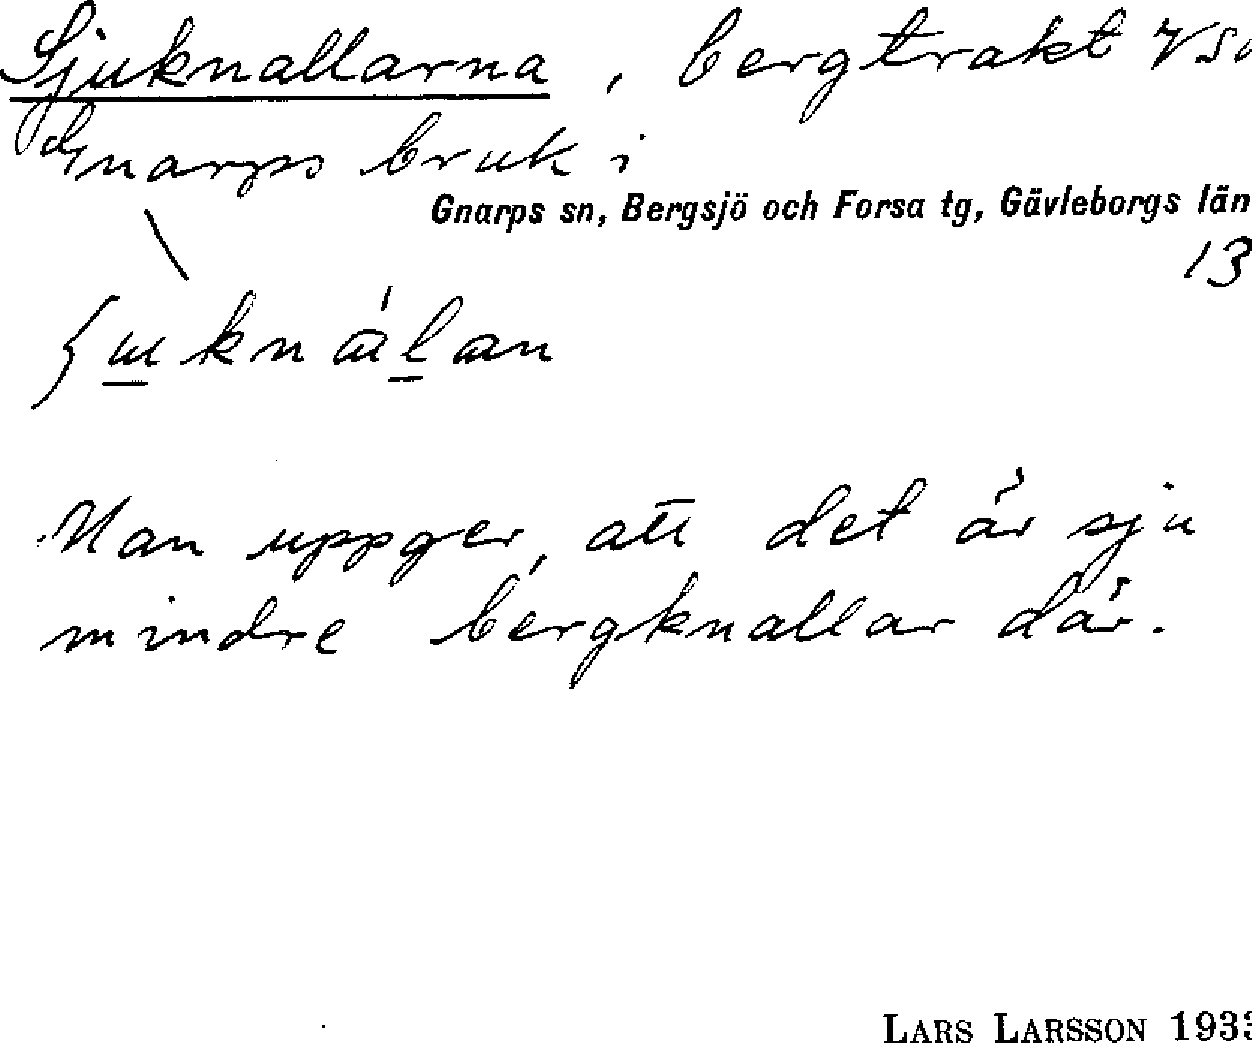 Sjuknallarna, bergtrakt VSO
Gnarps bruk i
Gnarps sn, Bergsjö och Forsa tg, Gävleborgs län
13
Man uppger, att det är sju
mindre bergknallar där.
LARS LARSSON 193